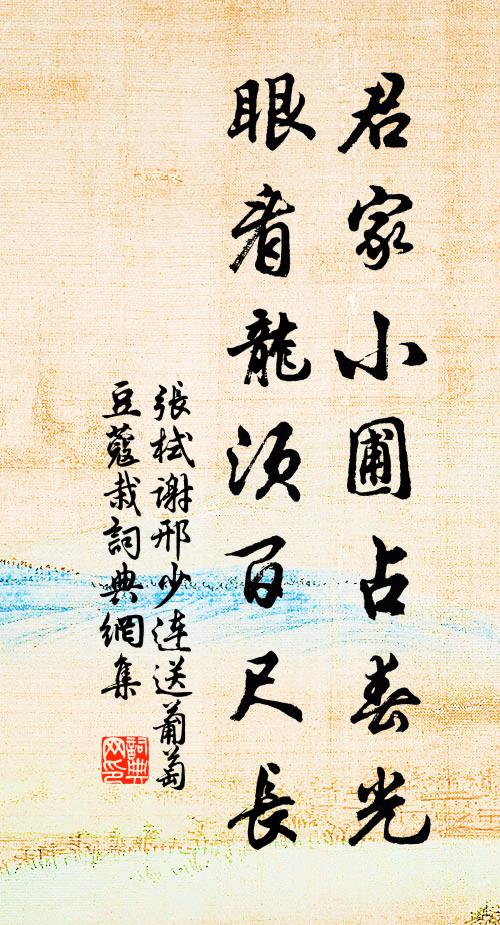 君家小圃占春光
眼看龍須百尺長
張栻谢邢少連送葡萄
豆蔻栽詞典網集
詞典网印